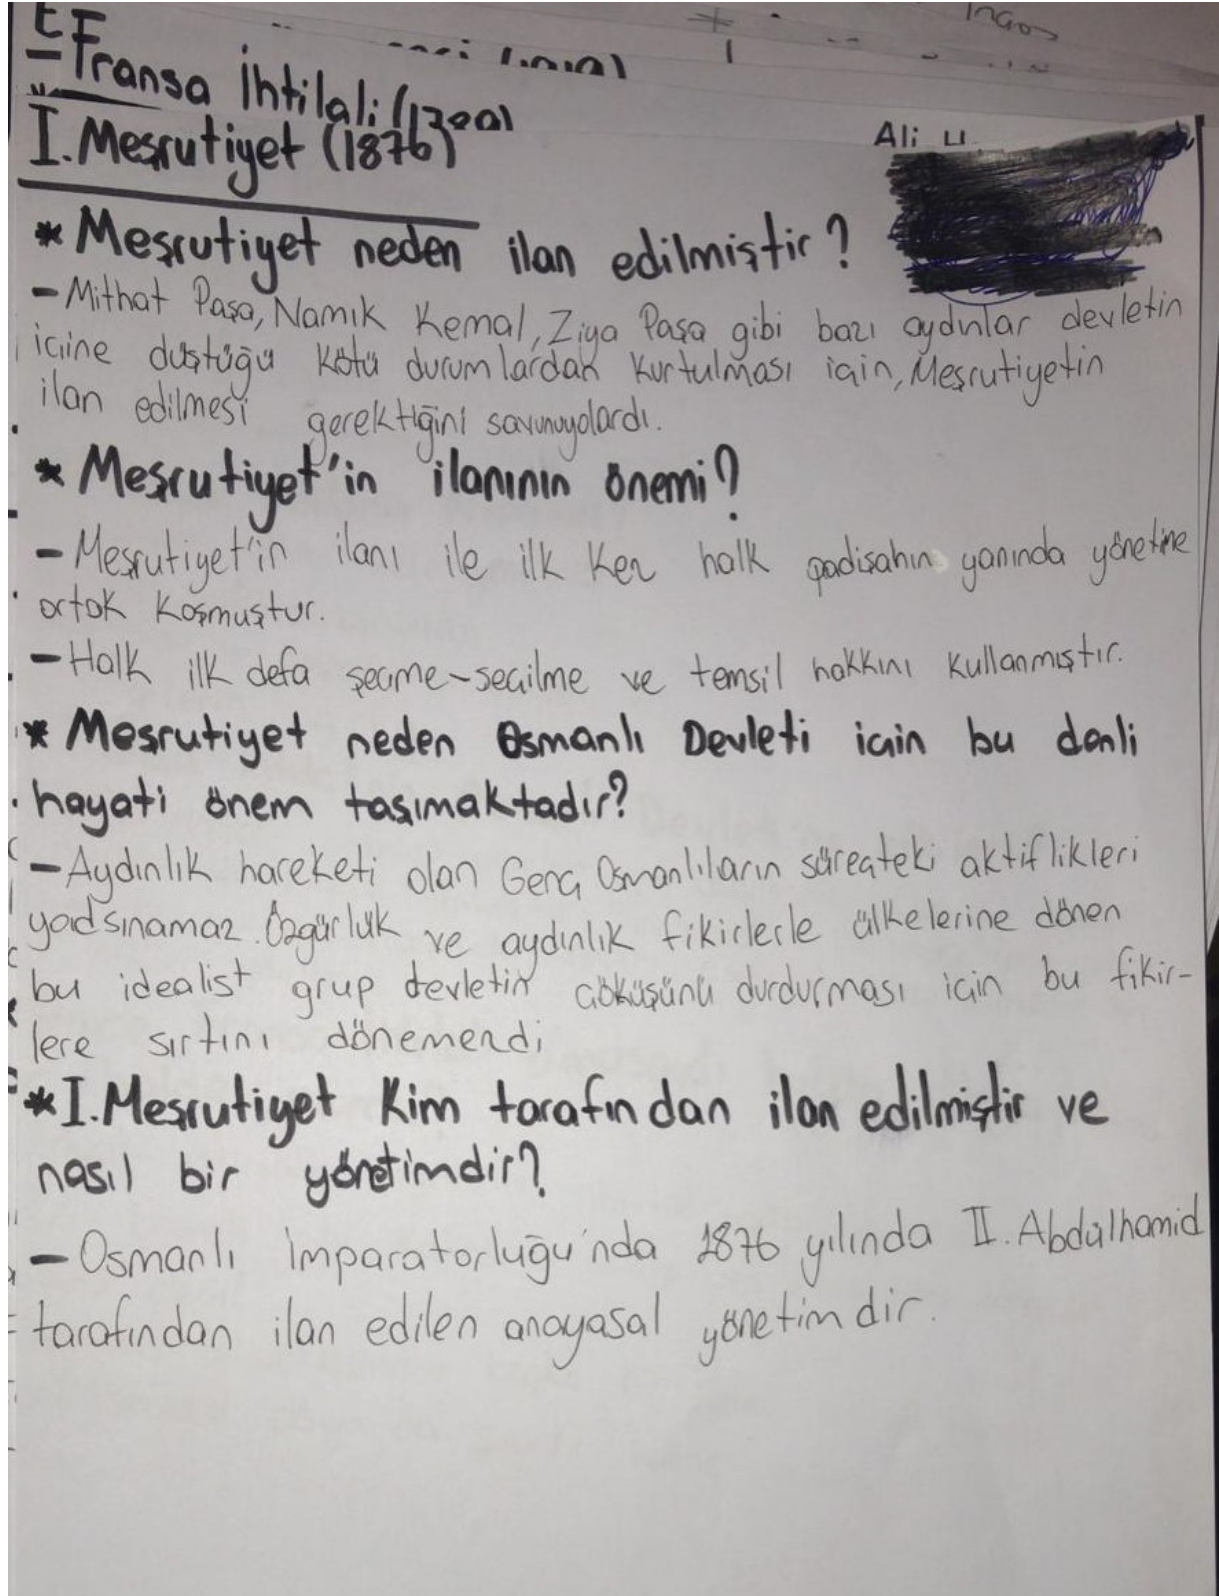 Fransa İhtilali
I. Meşrutiyet (1876)
Ali
* Meşrutiyet neden ilan edilmiştir?
- Mithat Paşa, Namık Kemal, Ziya Paşa gibi bazı aydınlar devletin
içine düştüğü kötü durumlardan kurtulması için, Meşrutiyetin
ilan edilmesi gerektiğini savunuyolardı.
* Meşrutiyet'in ilanının önemi?
- Meşrutiyet'in ilanı ile ilk kez halk padişahın yanında yönetime
ortak koşmuştur.
- Halk ilk defa seçme-seçilme ve temsil hakkını kullanmıştır.
* Meşrutiyet neden Osmanlı Devleti için bu denli
hayati önem taşımaktadır?
- Aydınlık hareketi olan Genç Osmanlıların süreçteki aktiflikleri
yadsınamaz. Özgürlük ve aydınlık fikirlerle ülkelerine dönen
bu idealist grup devletin çöküşünü durdurması için bu fikir-
lere sırtını dönemezdi
* I. Meşrutiyet Kim tarafından ilan edilmiştir ve
nasıl bir yönetimdir?
- Osmanlı İmparatorluğu'nda 1876 yılında II. Abdülhamid
tarafından ilan edilen anayasal yönetimdir.